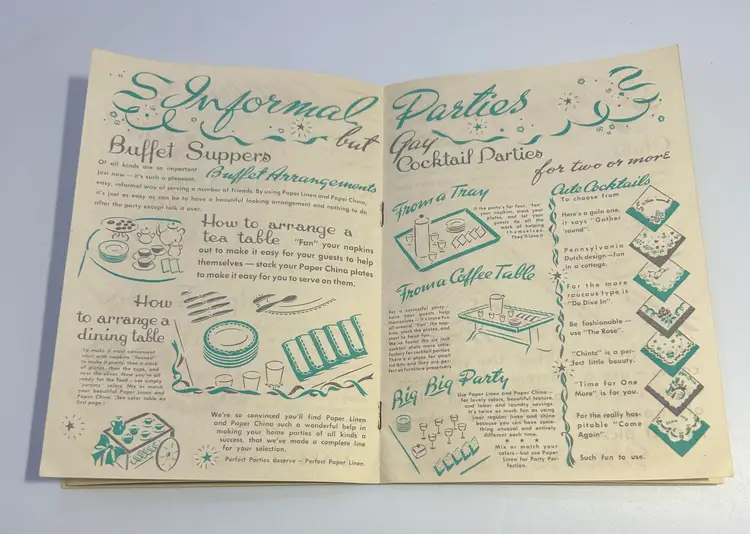 Informal but
Buffet Suppers
Of all kinds are so important
just now — it's such a pleasant,
Buffet Arrangements
easy, informal way of serving a number of friends. By using Paper Linen and Paper China,
it's just as easy as can be to have a beautiful looking arrangement and nothing to do
after the party except talk it over.
How to arrange a
tea table "Fan" your napkins
out to make it easy for your guests to help
themselves — stack your Paper China plates
to make it easy for you to serve on them.
How
to arrange a
dining table
To make it most convenient
start with napkins "fanned"
to make it pretty, then a stack
of plates, then the cups, and
next the silver. Now you're all
ready for the food — use simply
yummy colors. Mix or match
your beautiful Paper Linen and
Paper China. (See color table on
first page.)
We're so convinced you'll find Paper Linen
and Paper China such a wonderful help in
making your home parties of all kinds a
success, that we've made a complete line
for your selection.
Perfect Parties deserve — Perfect Paper Linen.
Parties
Gay
Cocktail Parties
for two or more
From a Tray
If the party's for four, "fan"
your napkins, stack your
plates, and let your
guests do all the
work of helping
themselves.
They'll love it
From a Coffee Table
For a successful party —
have your guests help
themselves — it's more fun
all around. "Fan" the nap-
kins, stack the plates, and
start to have fun.
We've found the six inch
cocktail plate more satis-
factory for cocktail parties.
There's a place for small
tid bits and they are per-
fect as furniture preservers
Big Big Party
Use Paper Linen and Paper China —
for lovely colors, beautiful texture,
and labor and laundry savings.
It's twice as much fun as using
your regular linen and china
because you can have some-
thing unusual and entirely
different each time.
Mix or match your
colors — but use Paper
Linen for Party Per-
fection.
Cute Cocktails
To choose from
Here's a gala one,
it says "Gather
'round".
Pennsylvania
Dutch design — fun
in a cottage.
For the more
raucous type is
"Do Dive In"
Be fashionable —
use "The Rose".
"Chintz" is a per-
fect little beauty.
"Time for One
More" is for you.
For the really hos-
pitable "Come
Again".
Such fun to use.